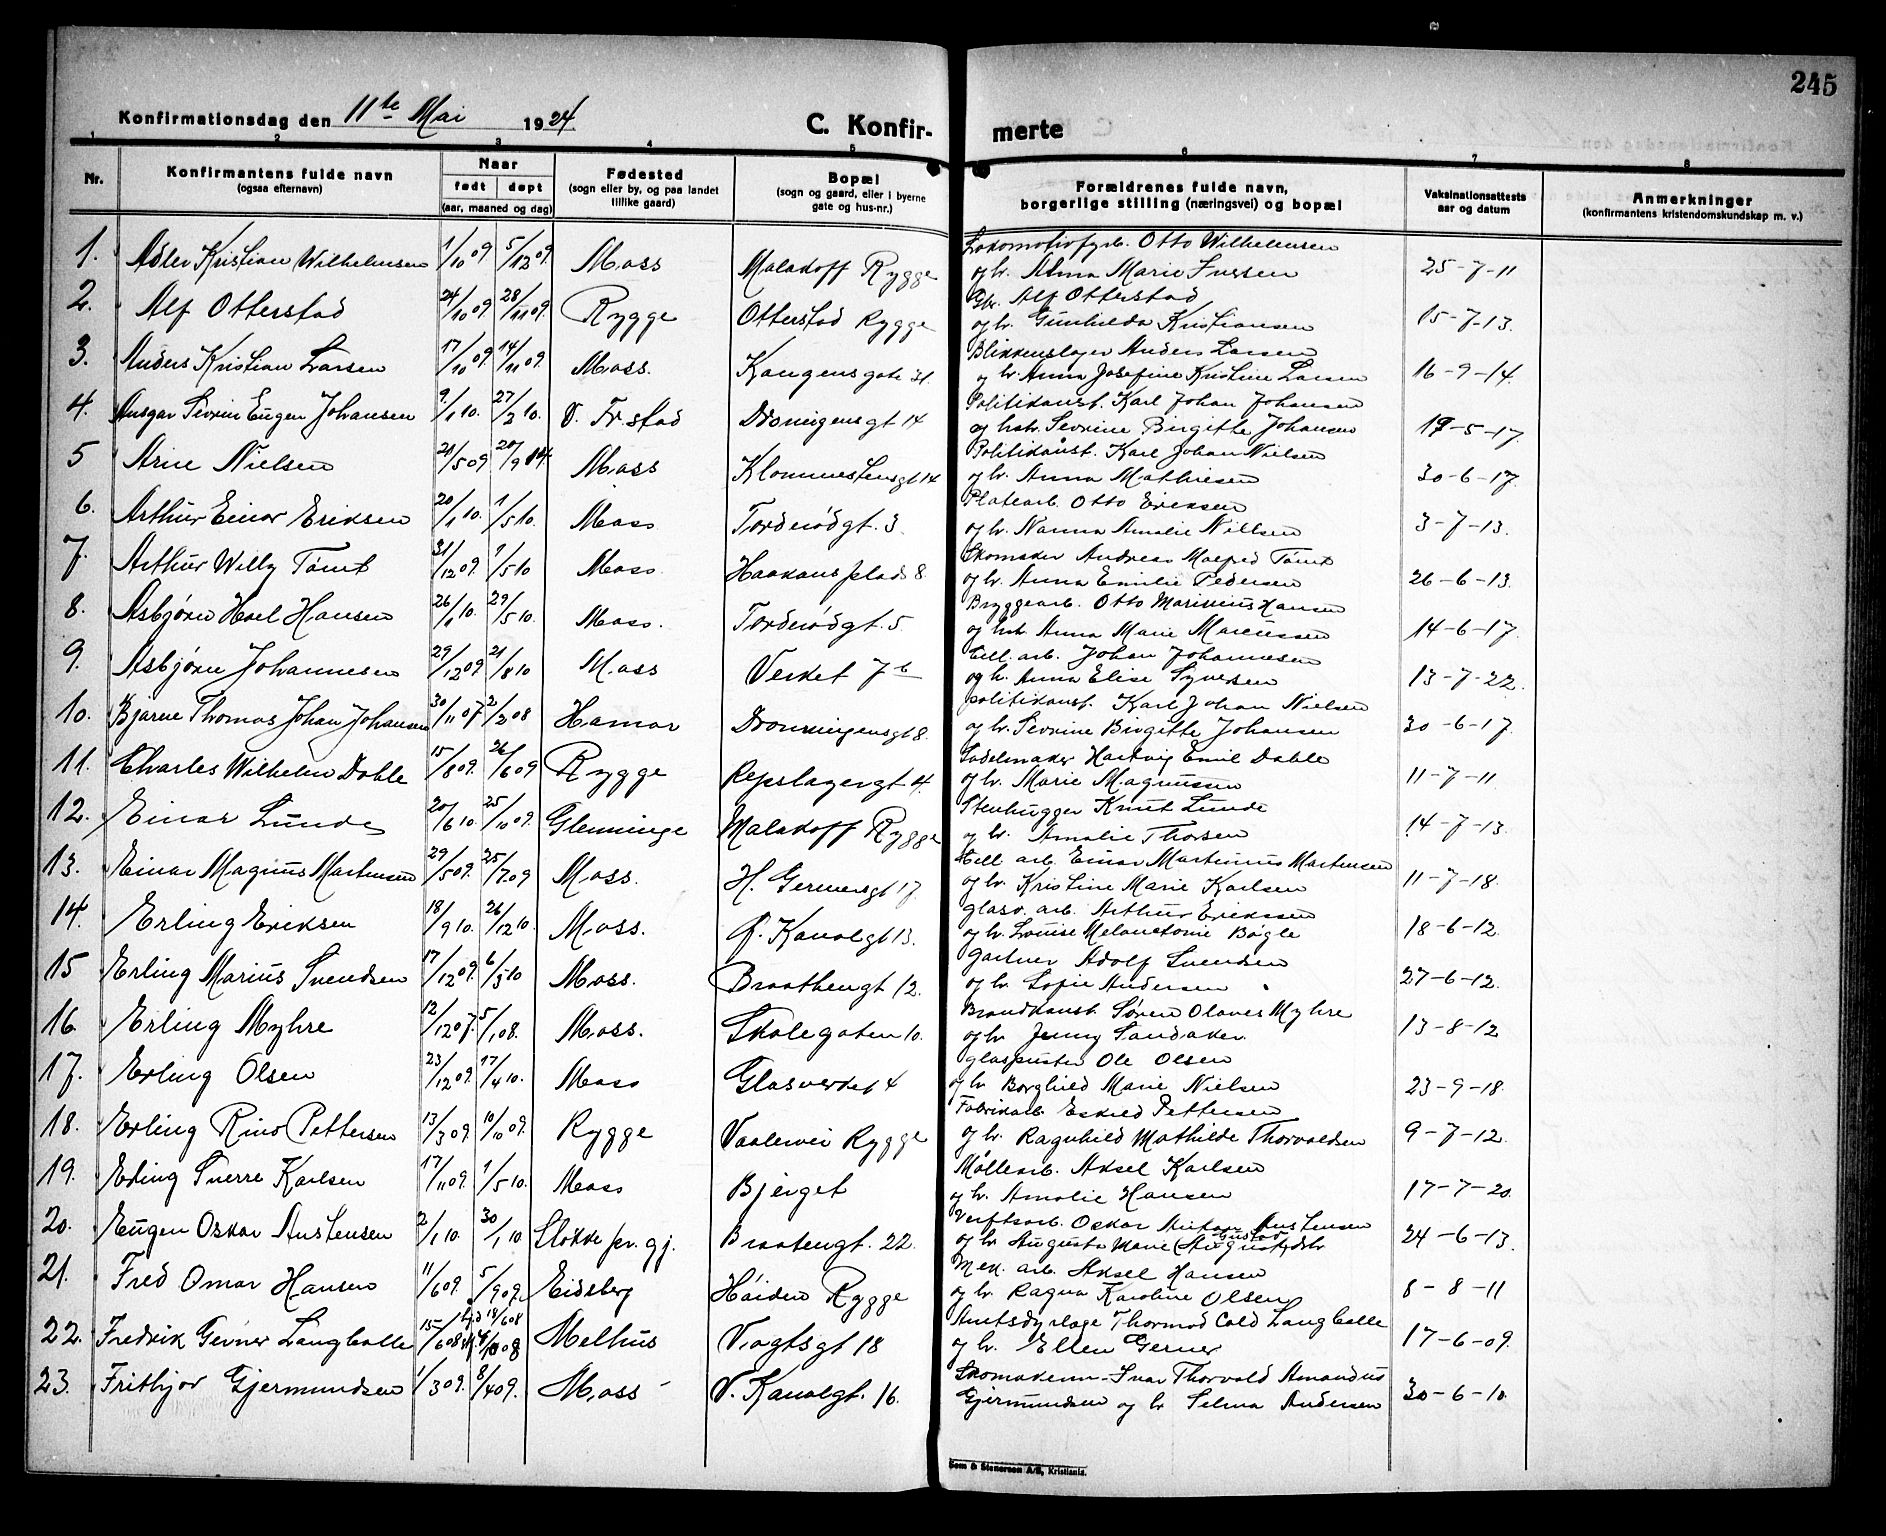 245
Konfirmationsdag den 11te Mai 1924
C. Konfir- merte
1 2 3 4 5 6 7 8
Nr. Konfirmantens fulde navn (ogsaa efternavn) Naar født døpt (aar, maaned og dag) Fødested (sogn eller by, og paa landet tillike gaard) Bopæl (sogn og gaard, eller i byerne gate og hus-nr.) Forældrenes fulde navn, borgerlige stilling (næringsvei) og bopæl Vaksinationsattests aar og datum Anmerkninger (konfirmantens kristendomskundskap m. v.)
Lokomotivfyrb. Otto Wilhelmsen
1. Adler Kristian Wilhelmsen 1/10 09 5/12 09. Moss Malakoff Rygge og h. Alma Marie 25-7-11
Gbr. Alf Otterstad
2. Alf Otterstad 24/10 09 28/11 09. Rygge Otterstad Rygge og h. Gunhilda Kristiansen 15-7-13.
Blikkenslager Anders Larsen
3. Anders Kristian Larsen 17/10 09. 14/11 09. Moss. Kongensgate 31. og h. Anna Josefine Kristine Larsen 16-9-14.
Politikonst. Karl Johan Johansen
4. Ansgar Sevrin Eugen Johansen 9/1 10. 27/2 10. V. Fr.stad Dronningensgt 14 og hst. Sevrine Birgitte Johansen 19-5-17.
Politikonst. Karl Johan Nielsen
5 Arne Nielsen 21/5 09 20/9 14. Moss Klommestensgt 14 og h. Anna Mathiesen 30-6-17.
Platearb. Otto Eriksen
6. Arthur Einar Eriksen 20/1 10. 1/5 10. Moss Tordenskjoldgt. 3 og h. Nanna Amalie Nilsen 3-7-13.
Skomaker Andreas Tømt
7. Arthur Willy Tømt 31/12 09. 1/5 10 Moss. Haakons plads 8. og h. Anna Emilie Pedersen 26-6-13.
Bryggearb. Otto Marinius Hansen
8. Asbjørn Hansen 26/1 10. 29/5 10. Moss. 5. og hst. Anna Marie Marcussen 14-6-17.
Cell. arb. Johan Johannesen
9. Asbjørn Johannesen 29/12 09 21/8 10 Moss Verket 7b og h. Anna Elise Syversen 13-7-22.
politikonst. Karl Johan Nielsen
10. Bjarne Thomas Johan Johansen 30/11 07. 2/2 08 Hamar Dronningensgt 8. og h. Sevrine Birgitte Johansen 30-6-17.
Sadelmaker Hartvig Emil Dahle
11. Charles Wilhelm Dahle 15/8 09. 26/6 09 Rygge Repslagergt 4. og h. Marie Magnussen 11-7-11
Stenhugger Knut Lunde
12. Einar Lunde 20/6 10. 25/10 09. Glemminge Malakoff Rygge og h. Amalie Thorsen 14-7-13.
Cell. arb. Einar Martinius Martensen
13. Einar Magnus Martensen 29/5 09. 25/7 09 Moss. H. Gernersgt 17. og h. Kristine Marie Karlsen 11-7-18.
Glasv. arb. Arthur Eriksen
14. Erling Eriksen 18/9 10. 26/12 10. Moss. Ø. Kanalgt 13. og h. Louise Melanctonie Bøgle 18-6-12.
Gartner Adolf Svendsen
15 Erling Marius Svendsen 17/12 09. 6/3 10 Moss. Braathengt 12. og h. Sofie Andersen 27-6-12.
Brandkonst. Søren Olaves Myhre
16. Erling Myhre 12/12 07. 5/1 08. Moss. Skolegaten 10. og h. Jenny Sandaker 13-8-12
glaspuster Ole Olsen
17. Erling Olsen 23/12 09. 17/4 10. Moss Glasverket 4 og h. Borghild Marie Nielsen 23-9-18.
Fabrikarb. Eskild Pettersen
18. Erling Rino Pettersen 13/3 09. 10/10 09. Rygge Vaalervei Rygge og h. Ragnhild Mathilde Thorvaldsen 9-7-12.
Møllearb. Aksel Karlsen
19. Erling Sverre Karlsen 17/11 09. 1/5 10. Moss Bjerget og h. Amalie Hansen 17-7-20.
Verftsarb. Oskar Anton Austensen
20. Eugen Oskar Austensen 2/1 10. 30/1 10 Slokke pr. gj. Braatengt. 22. og h. Augusta Marie Gustav 24-6-13.
Mek. arb. Aksel Hansen
21. Fred Omar Hansen 11/6 09. 5/9 09. Eidsberg Høiden Rygge og h. Ragna Karoline Olsen 8-8-11
Amtsdyrlæge Thormod Cold Langballe
22. Fredrik Gerner Langballe 15/6 08 hjd 18/6 08 Melhus Vogtsgt 18 og h. Ellen Gerner 17-6-09.
Skomakerm. Ivar Thorvald Amandus
23. Frithjov Gjermundsen 1/3 09. 8/4 09. Moss V. Kanalgt. 16. Gjermundsen og h. Selma Andersen 30-6-10.
Sem & Stenersen A/S, Kristiania.